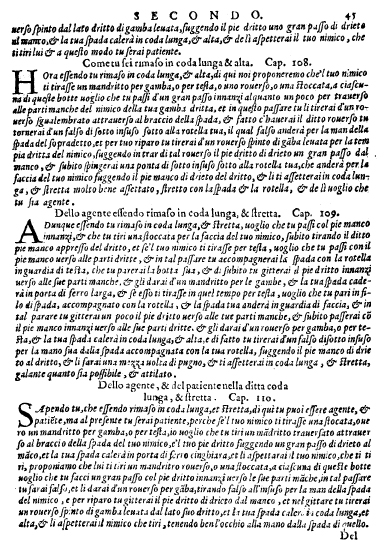 SECONDO. 45
uerso spinto dal lato dritto di gamba leuata, suggendo il pie dritto uno gran passo di drieto
al manco, & la tua spada calerà in coda lunga, & alta, & de lì aspetterai il tuo nimico, che
ti tiri lui & a questo modo tu serai patiente.
Come tu sei rimaso in coda lunga & alta. Cap. 108.
Hora essendo tu rimaso in coda lunga, & alta, di quì noi proponeremo che'l tuo nimico
ti tirasse un mandritto per gamba, o per testa, o uno rouerso, o una stoccata, a ciascu-
na di queste botte uoglio che tu passi d'un gran passo innanzi alquanto un poco per trauerso
alle parti manche del nimico della tua gamba dritta, et in questo passare tu li tirerai d'un ro-
uerso sgualembrato attrauerso al braccio della spada, & fatto c'hauerai il ditto rouerso tu
tornerai d'un falso di sotto insuso sotto alla rotella tua, il qual falso anderà per la man della
spada del sopradetto, et per tuo riparo tu tirerai d'un rouerso spinto di gamba leuata per la tem
pia dritta del nimico, suggendo in trar di tal rouerso il pie dritto di drieto un gran passo dal
manco, & subito spingerai una ponta di sotto insuso sotto alla rotella tua, che anderà per la
faccia del tuo nimico suggendo il pie manco di drieto del dritto, & lì ti assetterai in coda lun-
ga, & stretta molto bene assettato, stretto con la spada & la rotella, & de lì uoglio che
tu sia agente.
Dello agente essendo rimaso in coda lunga, & stretta. Cap. 109.
Adunque essendo tu rimaso in coda lunga, & stretta, uoglio che tu passi col pie manco
innanzi, & che tu tiri una stoccata per la faccia del tuo nimico, subito tirando il ditto
pie manco appresso del dritto, et se'l tuo nimico ti tirasse per testa, uoglio che tu passi con il
pie dritto uerso alle sue parti dritte, & in tal passare tu accompagnerai la spada con la rotella
in guardia di testa, che tu parerai la botta sua, & di subito tu gitterai il pie dritto innanzi
uerso alle sue parti manche, & gli darai d'un mandritto per le gambe, & la tua spada cade-
rà in porta di ferro larga, & se esso ti tirasse in quel tempo per testa, uoglio, che tu pari in fi-
lo di spada, accompagnato con la rotella, & la spada tua anderà in guardia di faccia, & in tal
parare tu gitterai un poco il pie dritto uerso alle tue parti manche, & subito passerai cõ
il pie manco innanzi uerso alle sue parti dritte. & gli darai d'un rouerso per gamba, o per te-
sta, & la tua spada calerà in coda lunga, & alta, e di fatto tu tirerai d'un falso disotto insuso
per la mano sua dalla spada accompagnata con la tua rotella, suggendo il pie manco di drie
to al dritto, & lì sarai una mezza uolta di pugno, & ti assetterai in coda lunga, & stretta,
galante quanto sia possibile, & attilato.
Dello agente, & del patiente nella ditta coda
lunga, & stretta. Cap. 110.
Sapendo tu, che essendo rimaso in coda lunga, et stretta, di quì tu puoi essere agente, &
patiẽte, ma al presente tu serai patiente, perche se'l tuo nimico ti tirasse una stoccata, oue
ro un mandritto per gamba, o per testa, io uoglio che tu tiri un mãdritto trauersato attrauer-
so al braccio della spada del tuo nimico, e'l tuo pie dritto suggendo un gran passo di drieto al
mãco, et la tua spada calerà in porta di ferro cinghiara, et lì aspettarai il tuo nimico, che ti ti
ri, proponiamo che lui ti tiri un mandritto o rouerso, o una stoccata, a ciascuna di queste botte
uoglio che tu facci un gran passo col pie dritto innanzi uerso le sue parti mãche, in tal passare
tu sarai falso, et li darai d'un rouerso per gãba, tirando falso all'insuso per la man della spada
del nimico, e per riparo tu gitterai il pie dritto di drieto dal manco, et nel gittare tu tirerai
un rouerso spinto di gamba leuata dal lato suo dritto, et la tua spada calerà in coda lunga, et
alta, & lì aspetterai il nimico che tiri, tenendo ben l'occhio alla mano dalla spada di quello.
Del